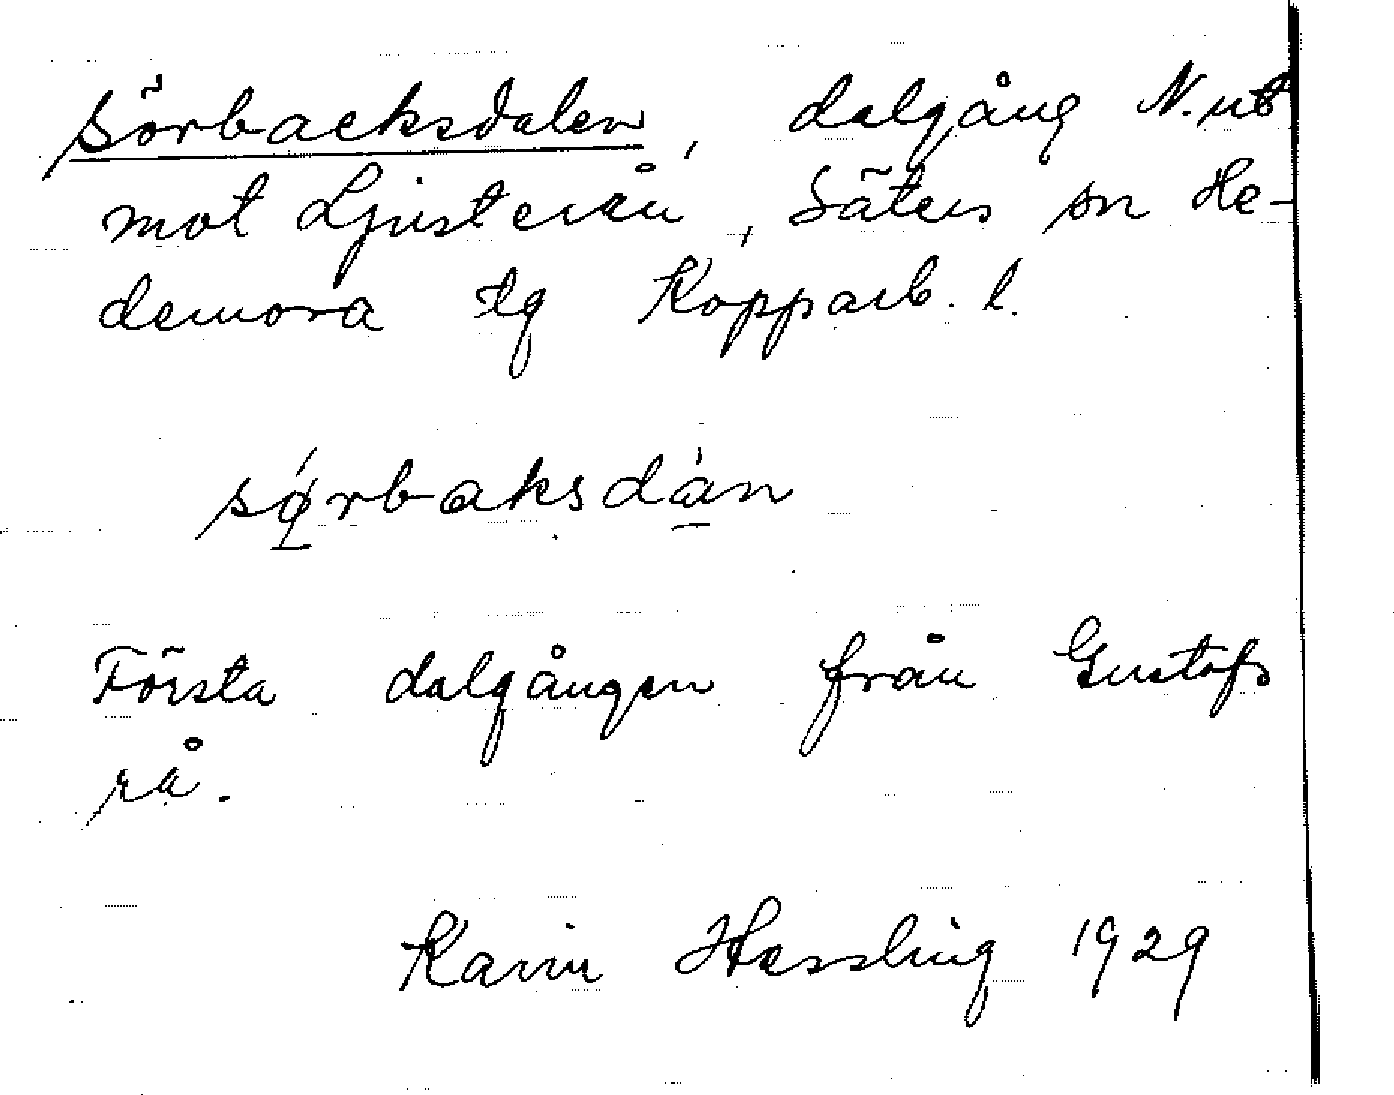 Sörbacksdalen, dalgång N. ut
mot Ljusterån, Säters sn He-
demora tg Kopparb. l.
sǿrbaksdàn
Första dalgången från Gustafs
rå.
Karin Hessling 1929